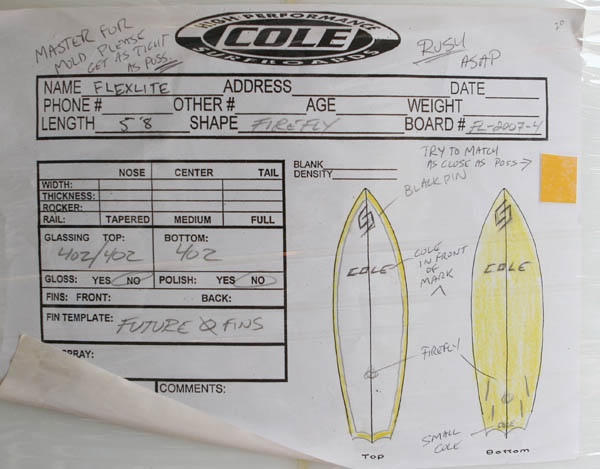 MASTER FOR
MOLD PLEASE
GET AS TIGHT
AS POSS.
HIGH PERFORMANCE
COLE
SURFBOARDS
RUSH
ASAP
20
NAME FLEXLITE ADDRESS DATE
PHONE # OTHER # AGE WEIGHT
LENGTH 5'8 SHAPE FIREFLY BOARD # FL-2007-4
BLANK
DENSITY
TRY TO MATCH
AS CLOSE AS POSS →
NOSE CENTER TAIL
WIDTH:
THICKNESS:
ROCKER:
RAIL: TAPERED MEDIUM FULL
GLASSING TOP: BOTTOM:
4oz/4oz 4oz
GLOSS: YES NO POLISH: YES NO
FINS: FRONT: BACK:
FIN TEMPLATE: FUTURE FINS
SPRAY:
COMMENTS:
BLACK PIN
COLE
COLE
IN FRONT
OF
MARK
COLE
FIREFLY
SMALL
COLE
Top
Bottom